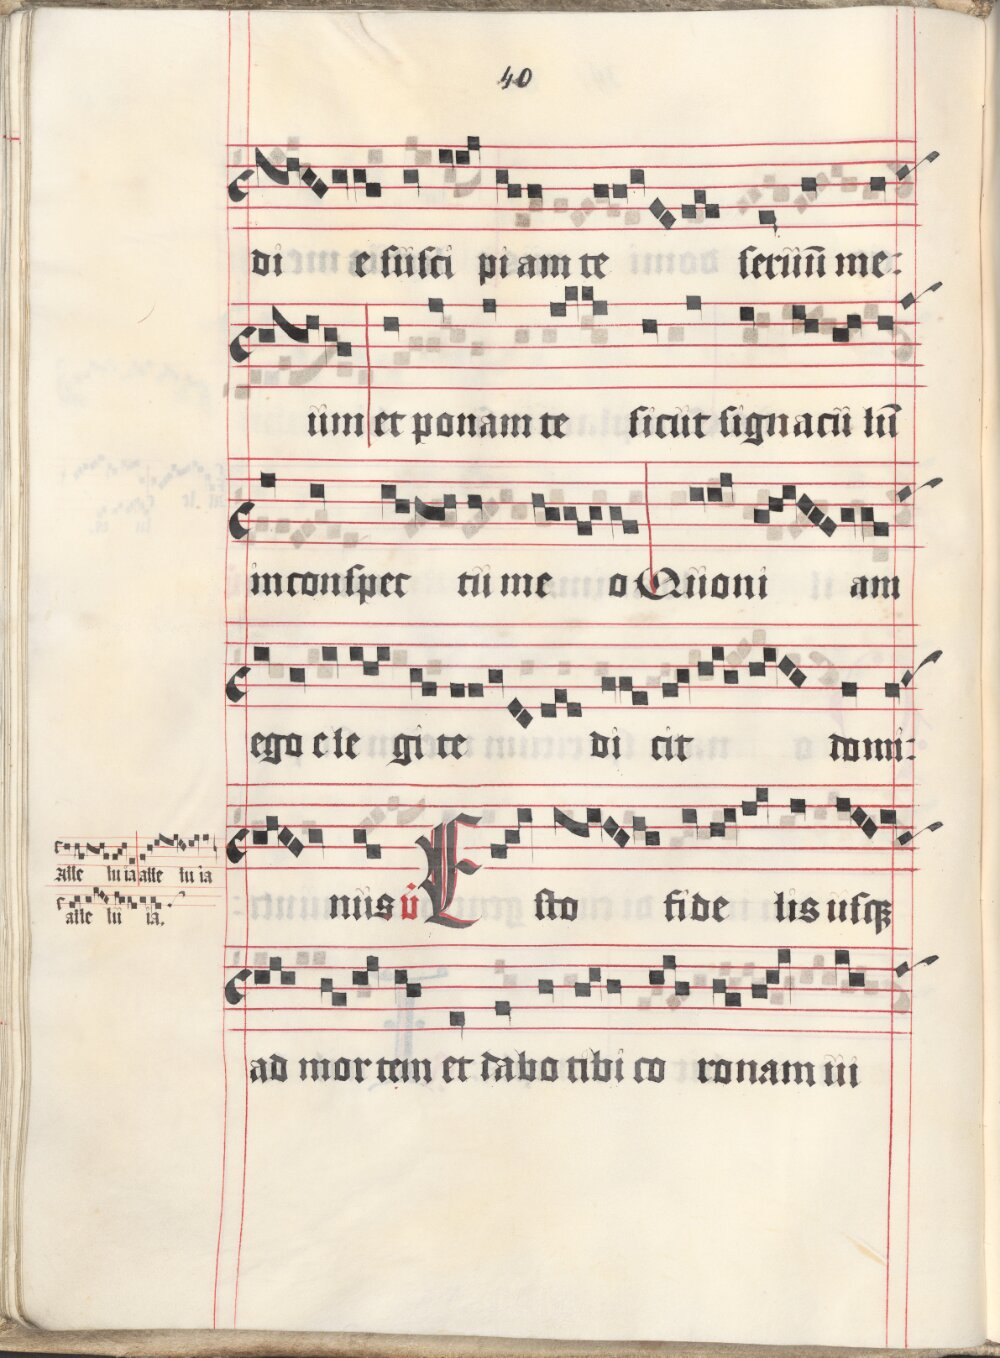 40
di e suſci pi am te ſeruū me:
um et ponam te ſicut ſignacu lū
in conſpec tu me o Quoni am
ego ele gi te di cit domi:
nus v̄ E ſto fide lis uſqꝫ
Alle lu ia alle lu ia
alle lu ia.
ad mor tem et dabo tibi co ronam ui